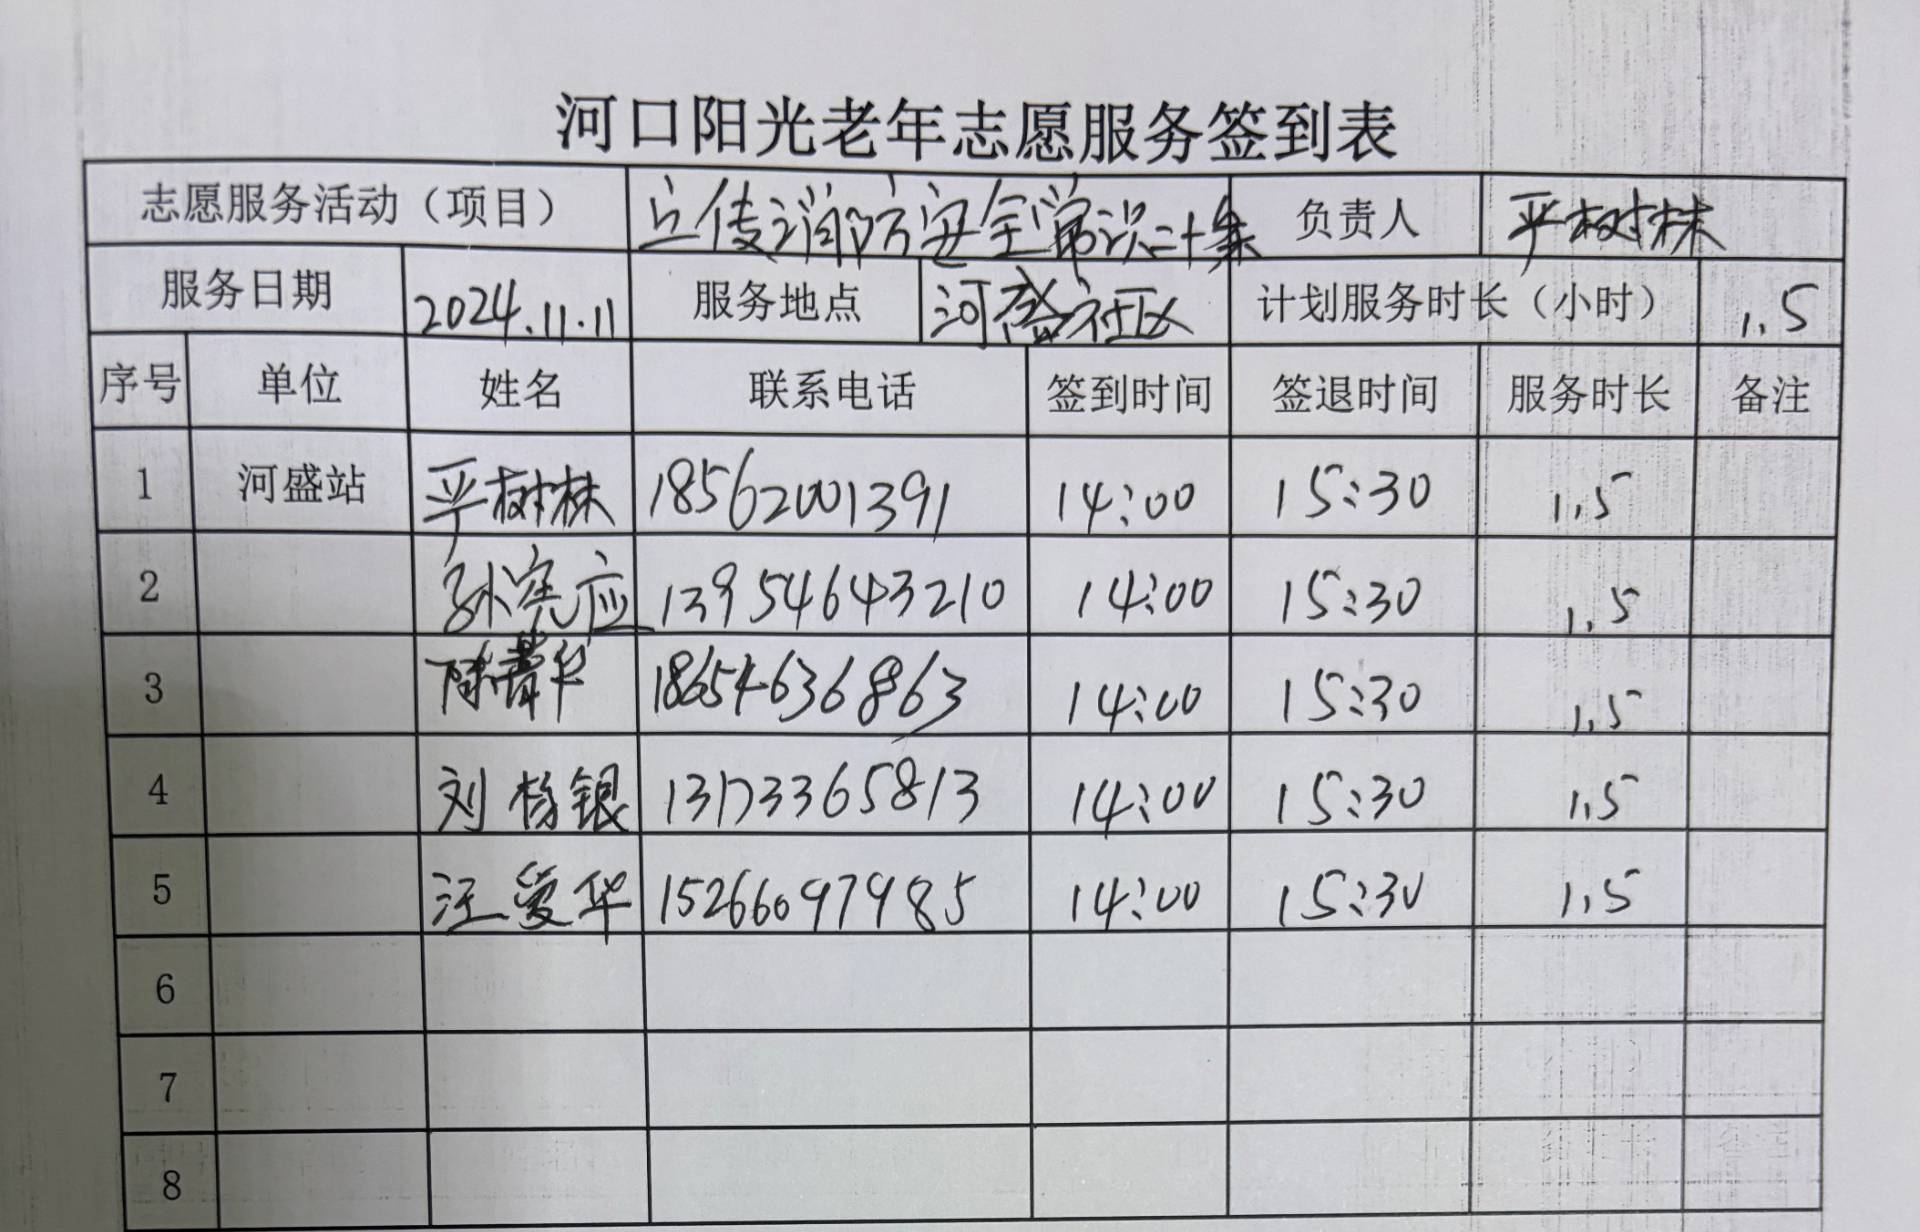 河口阳光老年志愿服务签到表
志愿服务活动（项目） 宣传消防安全常识二十条 负责人 平树林
服务日期 2024.11.11 服务地点 河盛社区 计划服务时长（小时） 1.5
序号 单位 姓名 联系电话 签到时间 签退时间 服务时长 备注
1 河盛站 平树林 18562001391 14:00 15:30 1.5
2 孙宪应 13954643210 14:00 15:30 1.5
3 陈 华 18654636863 14:00 15:30 1.5
4 刘杨银 13173365813 14:00 15:30 1.5
5 汪爱华 15266097985 14:00 15:30 1.5
6
7
8